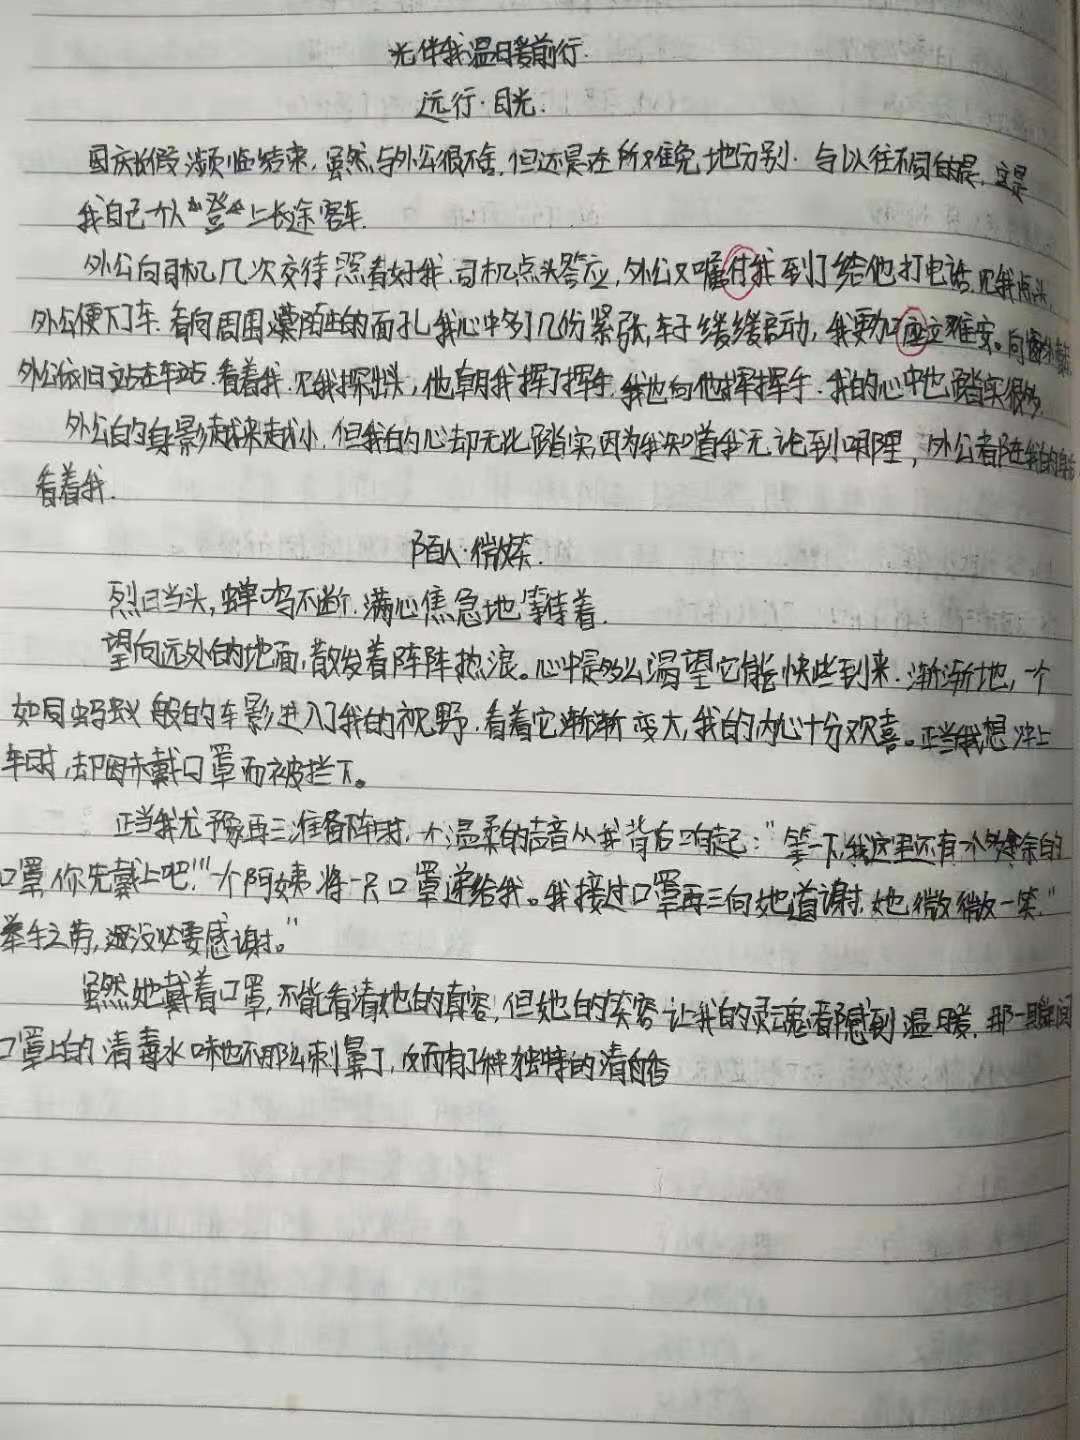 光伴我温暖前行.
远行·目光.
国庆长假濒临结束,虽然与外公很不舍,但还是在所难免地分别.与以往不同的是,这是
我自己一个人“登”上长途客车.
外公向司机几次交待照看好我,司机点头答应,外公又嘱付我到了给他打电话,见我点头,
外公便下了车.看向周围一张张陌生的面孔我心中多了几份紧张,车子缓缓启动,我更加座立难安。向窗外
外公依旧站在车站.看着我.见我探出头,他朝我挥了挥手,我也向他挥挥手.我的心中也踏实很多.
外公的身影越来越小,但我的心却无比踏实,因为我知道我无论到哪里,外公都在我的身
看着我.
陌人·微笑.
烈日当头,蝉鸣不断.满心焦急地等待着.
望向远处的地面,散发着阵阵热浪。心中是多么渴望它能快些到来.渐渐地,一个
如同蚂蚁般的车影进入了我的视野.看着它渐渐变大,我的内心十分欢喜。正当我想冲上
车时,却因未戴口罩而被拦下。
正当我尤豫再三准备下车时,一个温柔的声音从我背后响起:“等一下,我这里还有一个多余的
口罩你先戴上吧!”一个阿姨将一只口罩递给我。我接过口罩再三向她道谢,她微微一笑,“
举手之劳,没必要感谢。”
虽然她戴着口罩,不能看清她的真容,但她的笑容让我的灵魂都感到温暖,那一瞬间
口罩上的清毒水味也不那么刺鼻了,反而有了种独特的清香